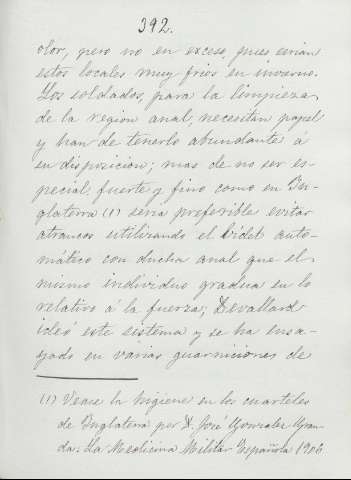 392.
olor, pero no en exceso, pues serian
estos locales muy frios en invierno.
Los soldados, para la limpieza
de la region anal, necesitan papel
y han de tenerlo abundante á
su disposicion; mas de no ser es-
pecial, fuerte y fino como en In-
glaterra (1) seria preferible evitar
atrancos utilizando el bidet auto-
mático con ducha anal que el
mismo individuo gradua en lo
relativo á la fuerza; Devallard
ideó este sistema y se ha ensa-
yado en varias guarniciones de
(1) Vease la higiene en los cuarteles
de Inglaterra por D. José Gonzalez Gran-
da. La Medicina Militar Española 1906